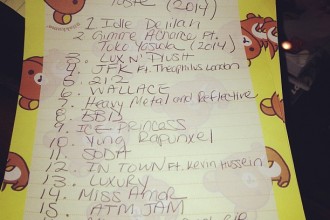 Taste (2014)
1 Idle Delilah
2. Gimme A Chance Ft.
(2014)
3. LUX N'
4. JFK Ft. Theophilus London
5. 212
6. WALLACE
7. Heavy Metal and Reflective
8. BBD
9. ICE PRINCESS
10. Yung Rapunxel
11. SODA
12. IN TOWN Ft. Kevin Hussein
13. LUXURY
14. MISS Amor
15. ATM JAM